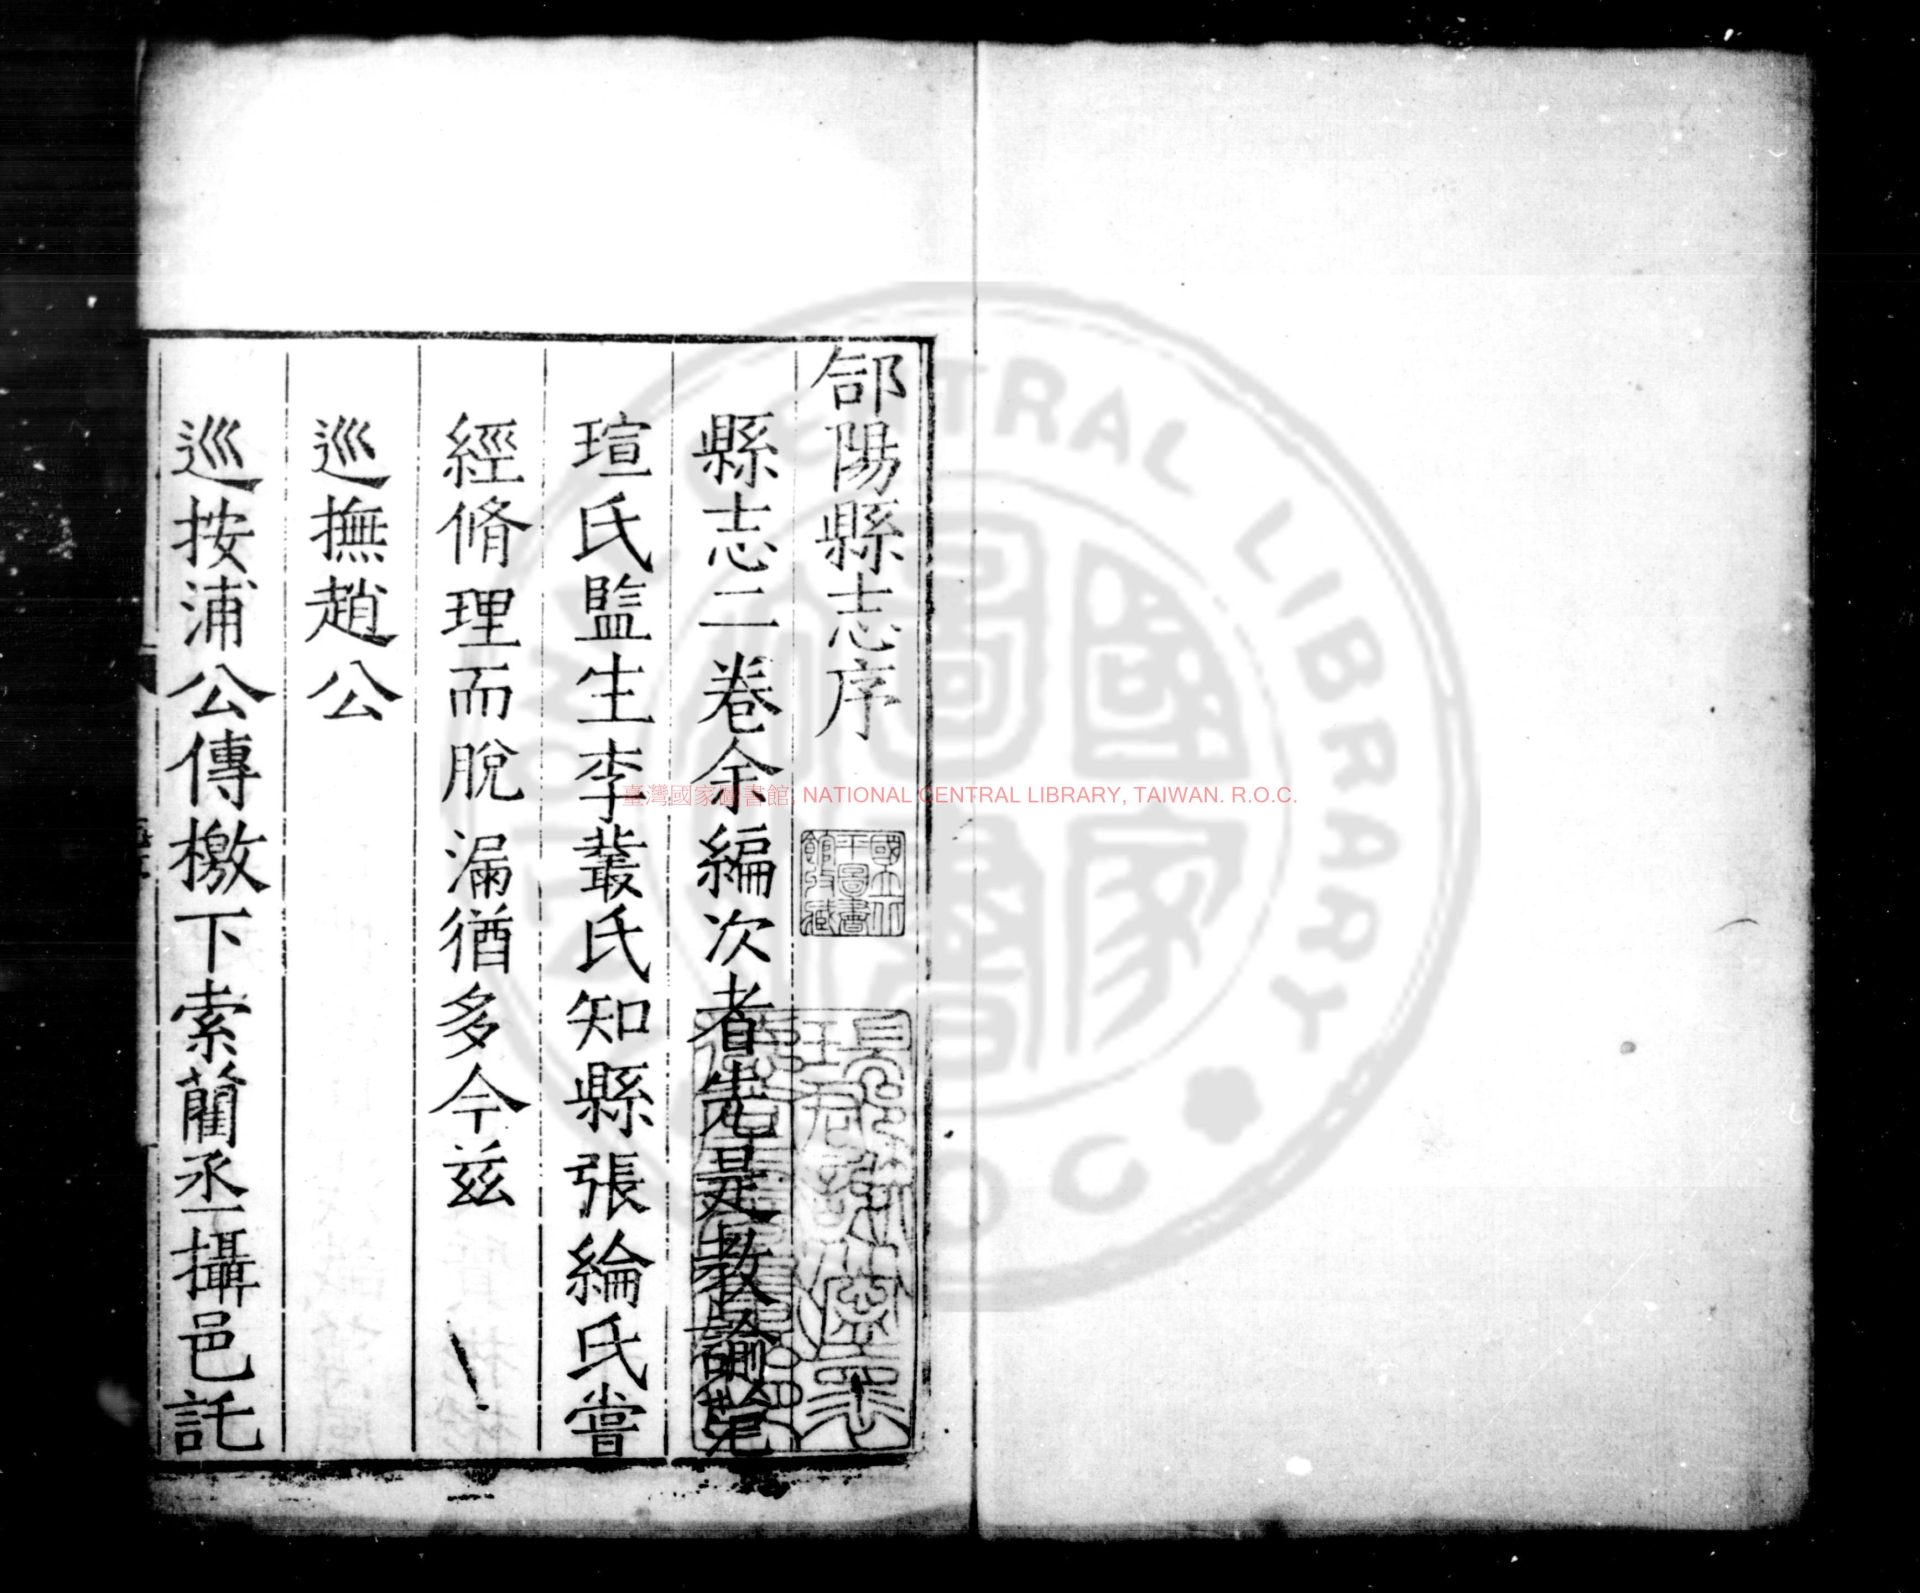 郃陽縣志序
縣志二卷余編次者先是教諭范
瑄氏監生李叢氏知縣張綸氏嘗
經脩理而脫漏猶多今茲
巡撫趙公
巡按浦公傳檄下索藺丞攝邑託
臺灣國家圖書館, NATIONAL CENTRAL LIBRARY, TAIWAN. R.O.C.
國立北
平圖書
館收藏